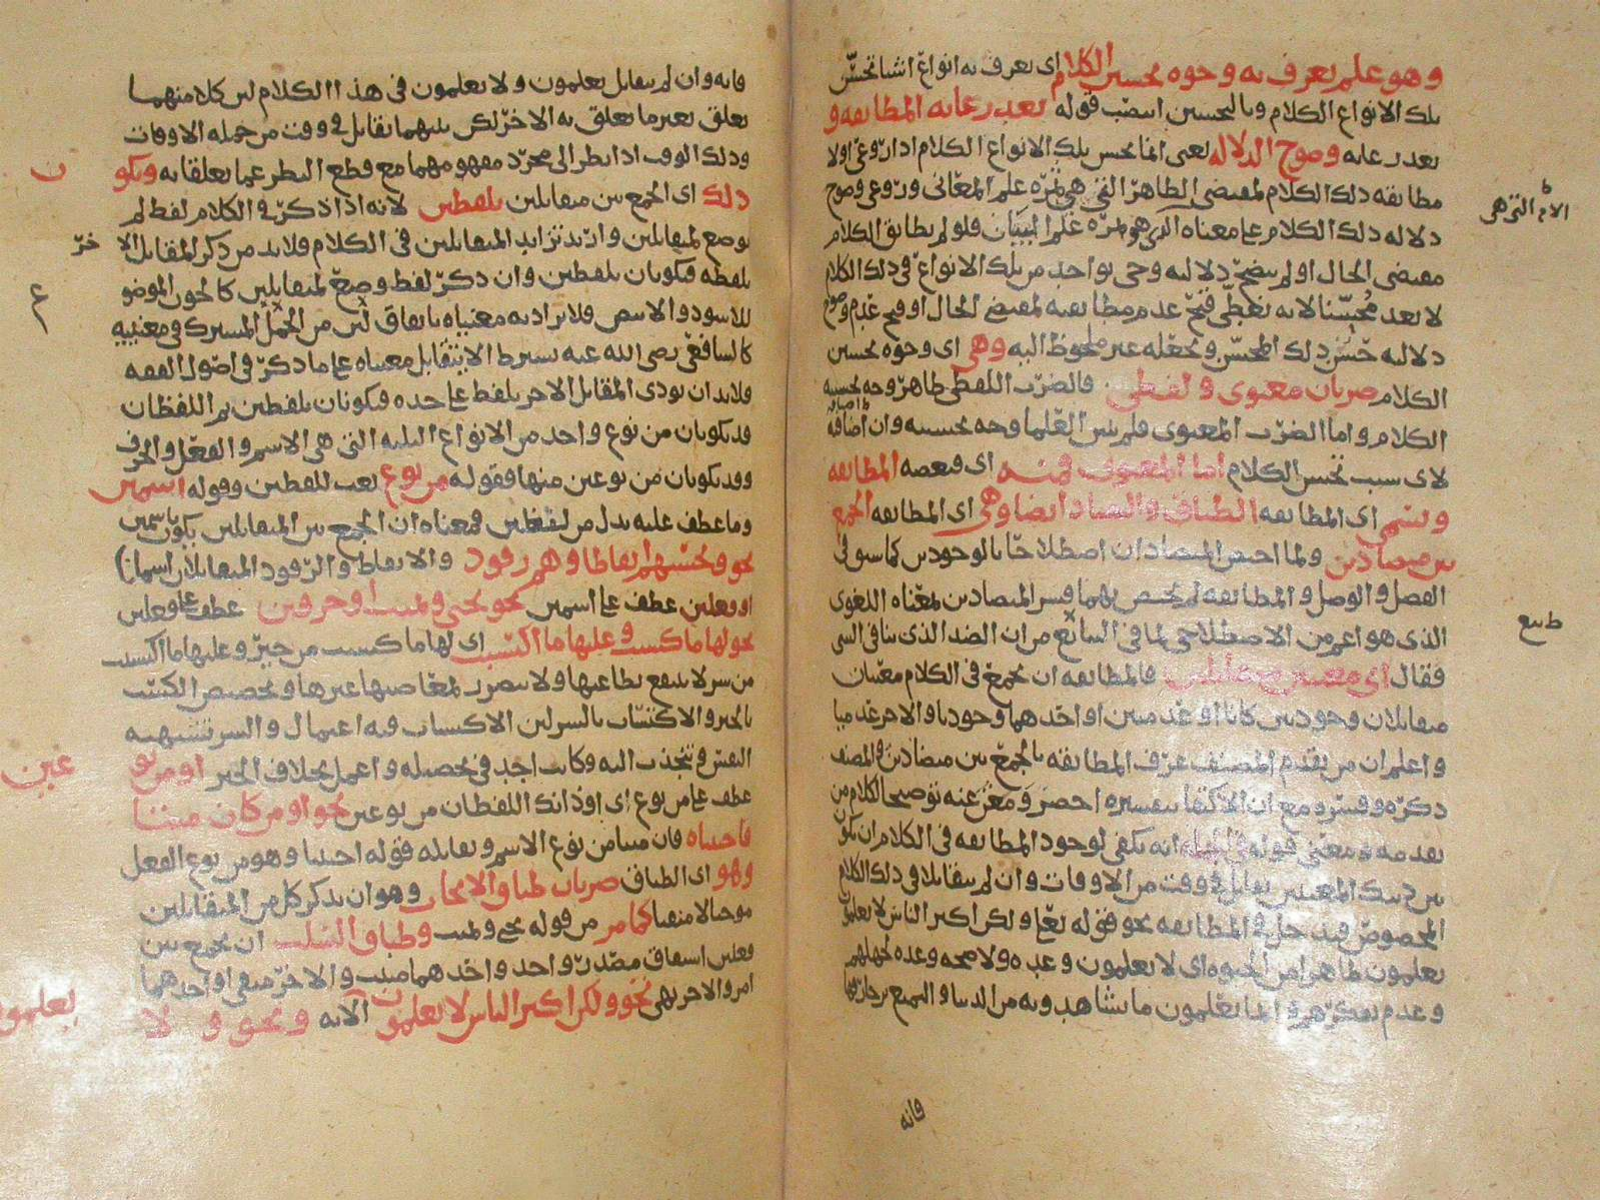 وهو علم يعرف به وجوه تحسين الكلام اى يعرف به انواع اشيا تحسّن
تلك الانواع الكلام وبالتحسين انتصب قوله بعد رعاية المطابقة و
بعد رعاية وضوح الدلالة يعنى انما يحسن تلك الانواع الكلام اذا روعى اولا
مطابقة ذلك الكلام لمقتضى الظاهر التى هى ثمرة علم المعانى وروعى وضوح
دلالة ذلك الكلام على معناه الذى هو ثمرة علم البيان فلو لم يطابق الكلام
مقتضى الحال او لم يتضح دلالته وحى بواحد من تلك الانواع فى ذلك الكلام
لا يعد محسّنا لانه يغطى قبح عدم مطابقته لمقتضى الحال او قبح عدم وضوح
دلالته حسن ذلك المحسّن ويجعله غير ملحوظ اليه وهى اى وجوه تحسين
الكلام ضربان معنوى ولفظى فالضرب اللفظى ظاهر وجه تحسينه
الكلام واما الضرب المعنوى فلم يبين العلما وجه تحسينه وان اضافة
لاى سبب تحسن الكلام اما المعنوى فمنه اى فبعضه المطابقة
وتسمى اى المطابقة الطباق والتضاد ايضا وهى اى المطابقة الجمع
بين متضادين ولما اختص المتضادان اصطلاحا بالوجودين كما سو فى
الفصل والوصل والمطابقة لم يختص بهما فسر المتضادين لمعناه اللغوى
الذى هو اعم من الاصطلاحى لما فى السائع من ان الضد الذى ينافى الشى
فقال اى معنيين متقابلين فالمطابقة ان يجمع فى الكلام معنيان
متقابلان وجوديين كانا او عدميين او احدهما وجوديا والاخر عدميا
واعلم ان من تقدم المصنف عرف المطابقة بالجمع بين متضادين والمصنف
ذكره وفسره مع ان الاكتفا بتفسيره اخصر ومغن عنه توضيحا لكلام من
تقدمه ومعنى قوله فى الجملة انه يكفى لوجود المطابقة فى الكلام ان يكون
بين ذينك المعنيين تقابل فى وقت من الاوقات وان لم يتقابلا فى ذلك الكلام
المخصوص فيدخل فى المطابقة نحو قوله تعالى ولكن اكثر الناس لا يعلمون
يعلمون ظاهرا من الحيوة اى لا يعلمون وعده ولا صحة وعده لجهلهم
وعدم تفكرهم وانما يعلمون ما يشاهدونه من الدنيا والتمتع بزخارفها
الا م التى هى
ط يع
فانه
فانه وان لم يتقابل يعلمون ولا يعلمون فى هذا الكلام لين كلا منهما
تعلق بغير ما تعلق به الاخر لكن بينهما تقابل فى وقت من جملة الاوقات
وذلك الوقت اذا نظر الى مجرد مفهومهما مع قطع النظر عما تعلقا به ويكو ن
ذلك اى الجمع بين متقابلين بلفظين لانه اذا ذكر فى الكلام لفظ لم
يوضع لمتقابلين واريد تزايد المتقابلين فى الكلام فلا بد من ذكر المقابل الا خر
بلفظه فيكونان بلفظين وان ذكر لفظ وضع لمتقابلين كالجون الموضو ع
للاسود والابيض فلا يراد به معنياه باتفاق لين من الجمل المشترك فى معنييه
كالشافعى رضى الله عنه يشترط الا يتقابل معنياه على ما ذكر فى اصول الفقه
فلا بد ان يودى المقابل الاخر بلفظ على حده فيكونان بلفظين ثم اللفظان
قد يكونان من نوع واحد من الانواع الثلثة التى هى الاسم والفعل والحرف
وقد يكونان من نوعين منها فقوله من نوع نعت للفظين وقوله اسمين
وما عطف عليه بدل من لفظين فمعناه ان الجمع بين المتقابلين يكون باسمين
نحو وتحسبهم ايقاظا وهم رقود والايقاظ والرقود المتقابلان اسمان
او فعلين عطف على اسمين نحو يحيى ويميت او حرفين عطف على فعلين
نحو لها ما كسبت وعليها ما اكتسبت اى لها ما كسبت من خير وعليها ما اكتسبت
من شر لا ينتفع بطاعتها ولا يتضرر لمعاصيها غيرها وتخصيص الكسب
بالخير والاكتساب بالشر لين الاكتساب فيه اعتمال والشر تشتهيه
النفس وتنجذب اليه وكانت اجد فى تحصيله واعمل بخلاف الخير او من نو عين
عطف على من نوع اى او ذانك اللفظان من نوعين نحو او من كان ميتا
فاحييناه فان ميتا من نوع الاسم ويقابله قوله احيينا وهو من نوع الفعل
وهو اى الطباق ضربان طباق الايجاب وهو ان يذكر كل من المتقابلين
موجبا لا منفيا كما مر من قوله يحيى ويميت وطباق السلب ان يجمع بين
فعلين اشتقاق مصدر واحد واحدهما مثبت والاخر منفى او احدهما
امر والاخر نهى نحو ولكن اكثر الناس لا يعلمون الآية ونحو و لا يعلمون